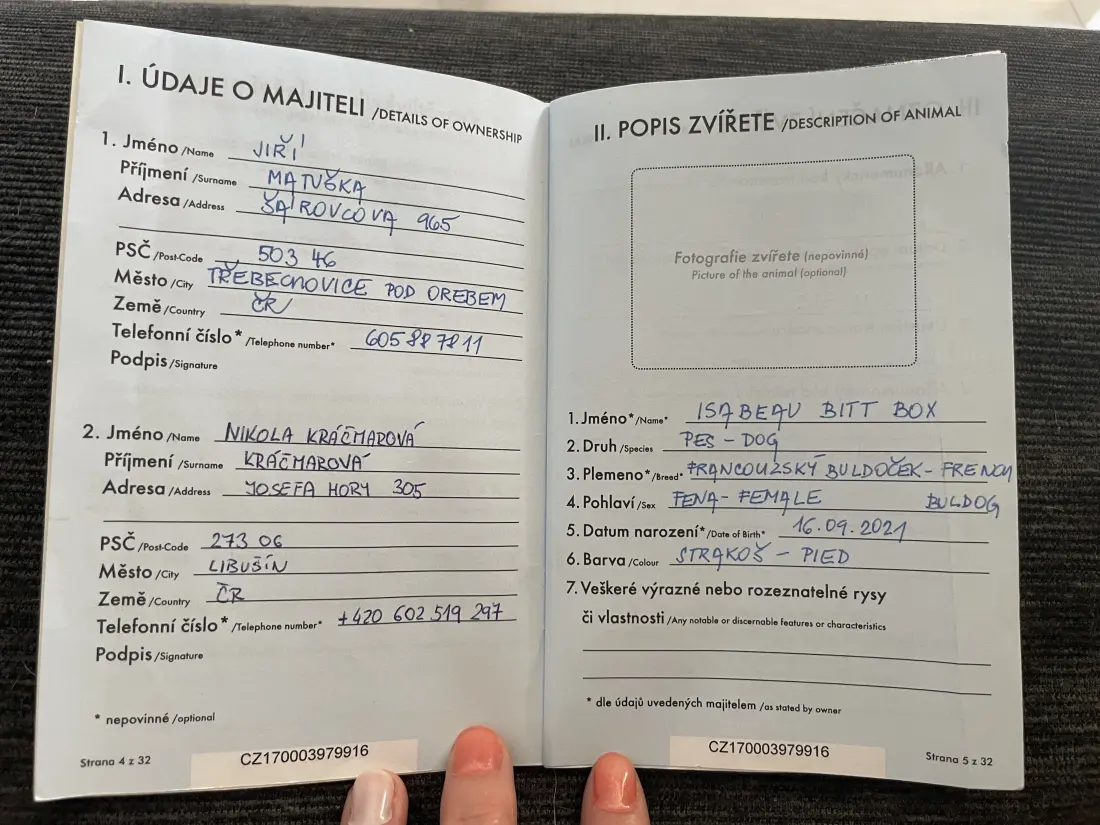 I. ÚDAJE O MAJITELI /DETAILS OF OWNERSHIP
1. Jméno /Name JIŘÍ
Příjmení /Surname MATUŠKA
Adresa /Address ŠÁROVCOVA 965
PSČ /Post-Code 503 46
Město /City TŘEBECHOVICE POD OREBEM
Země /Country ČR
Telefonní číslo* /Telephone number* 605887811
Podpis /Signature
2. Jméno /Name NIKOLA KRÁČMAROVÁ
Příjmení /Surname KRÁČMAROVÁ
Adresa /Address JOSEFA HORY 305
PSČ /Post-Code 273 06
Město /City LIBUŠÍN
Země /Country ČR
Telefonní číslo* /Telephone number* +420 602 519 297
Podpis /Signature
* nepovinné /optional
Strana 4 z 32
CZ170003979916
II. POPIS ZVÍŘETE /DESCRIPTION OF ANIMAL
Fotografie zvířete (nepovinné)
Picture of the animal (optional)
1. Jméno* /Name* ISABEAU BITT BOX
2. Druh /Species PES - DOG
3. Plemeno* /Breed* FRANCOUZSKÝ BULDOČEK - FRENCH
4. Pohlaví /Sex FENA - FEMALE BULDOG
5. Datum narození* /Date of Birth* 16.09.2021
6. Barva /Colour STRAKOŠ - PIED
7. Veškeré výrazné nebo rozeznatelné rysy
či vlastnosti /Any notable or discernable features or characteristics
* dle údajů uvedených majitelem /as stated by owner
CZ170003979916
Strana 5 z 32